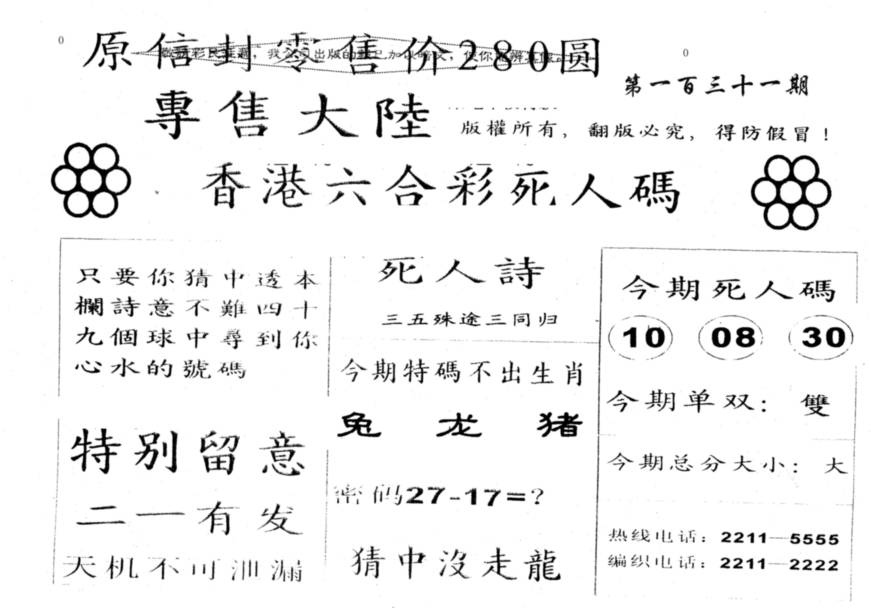 0
原信封零售价280圆
0
第一百三十一期
專售大陸
版權所有，翻版必究，得防假冒！
香港六合彩死人碼
只要你猜中透本
欄詩意不難四十
九個球中尋到你
心水的號碼
特别留意
二一有发
天机不可泄漏
死人詩
三五殊途三同归
今期特碼不出生肖
兔 龙 猪
密码27-17=?
猜中沒走龍
今期死人碼
10 08 30
今期单双：雙
今期总分大小：大
热线电话：2211—5555
编织电话：2211—2222